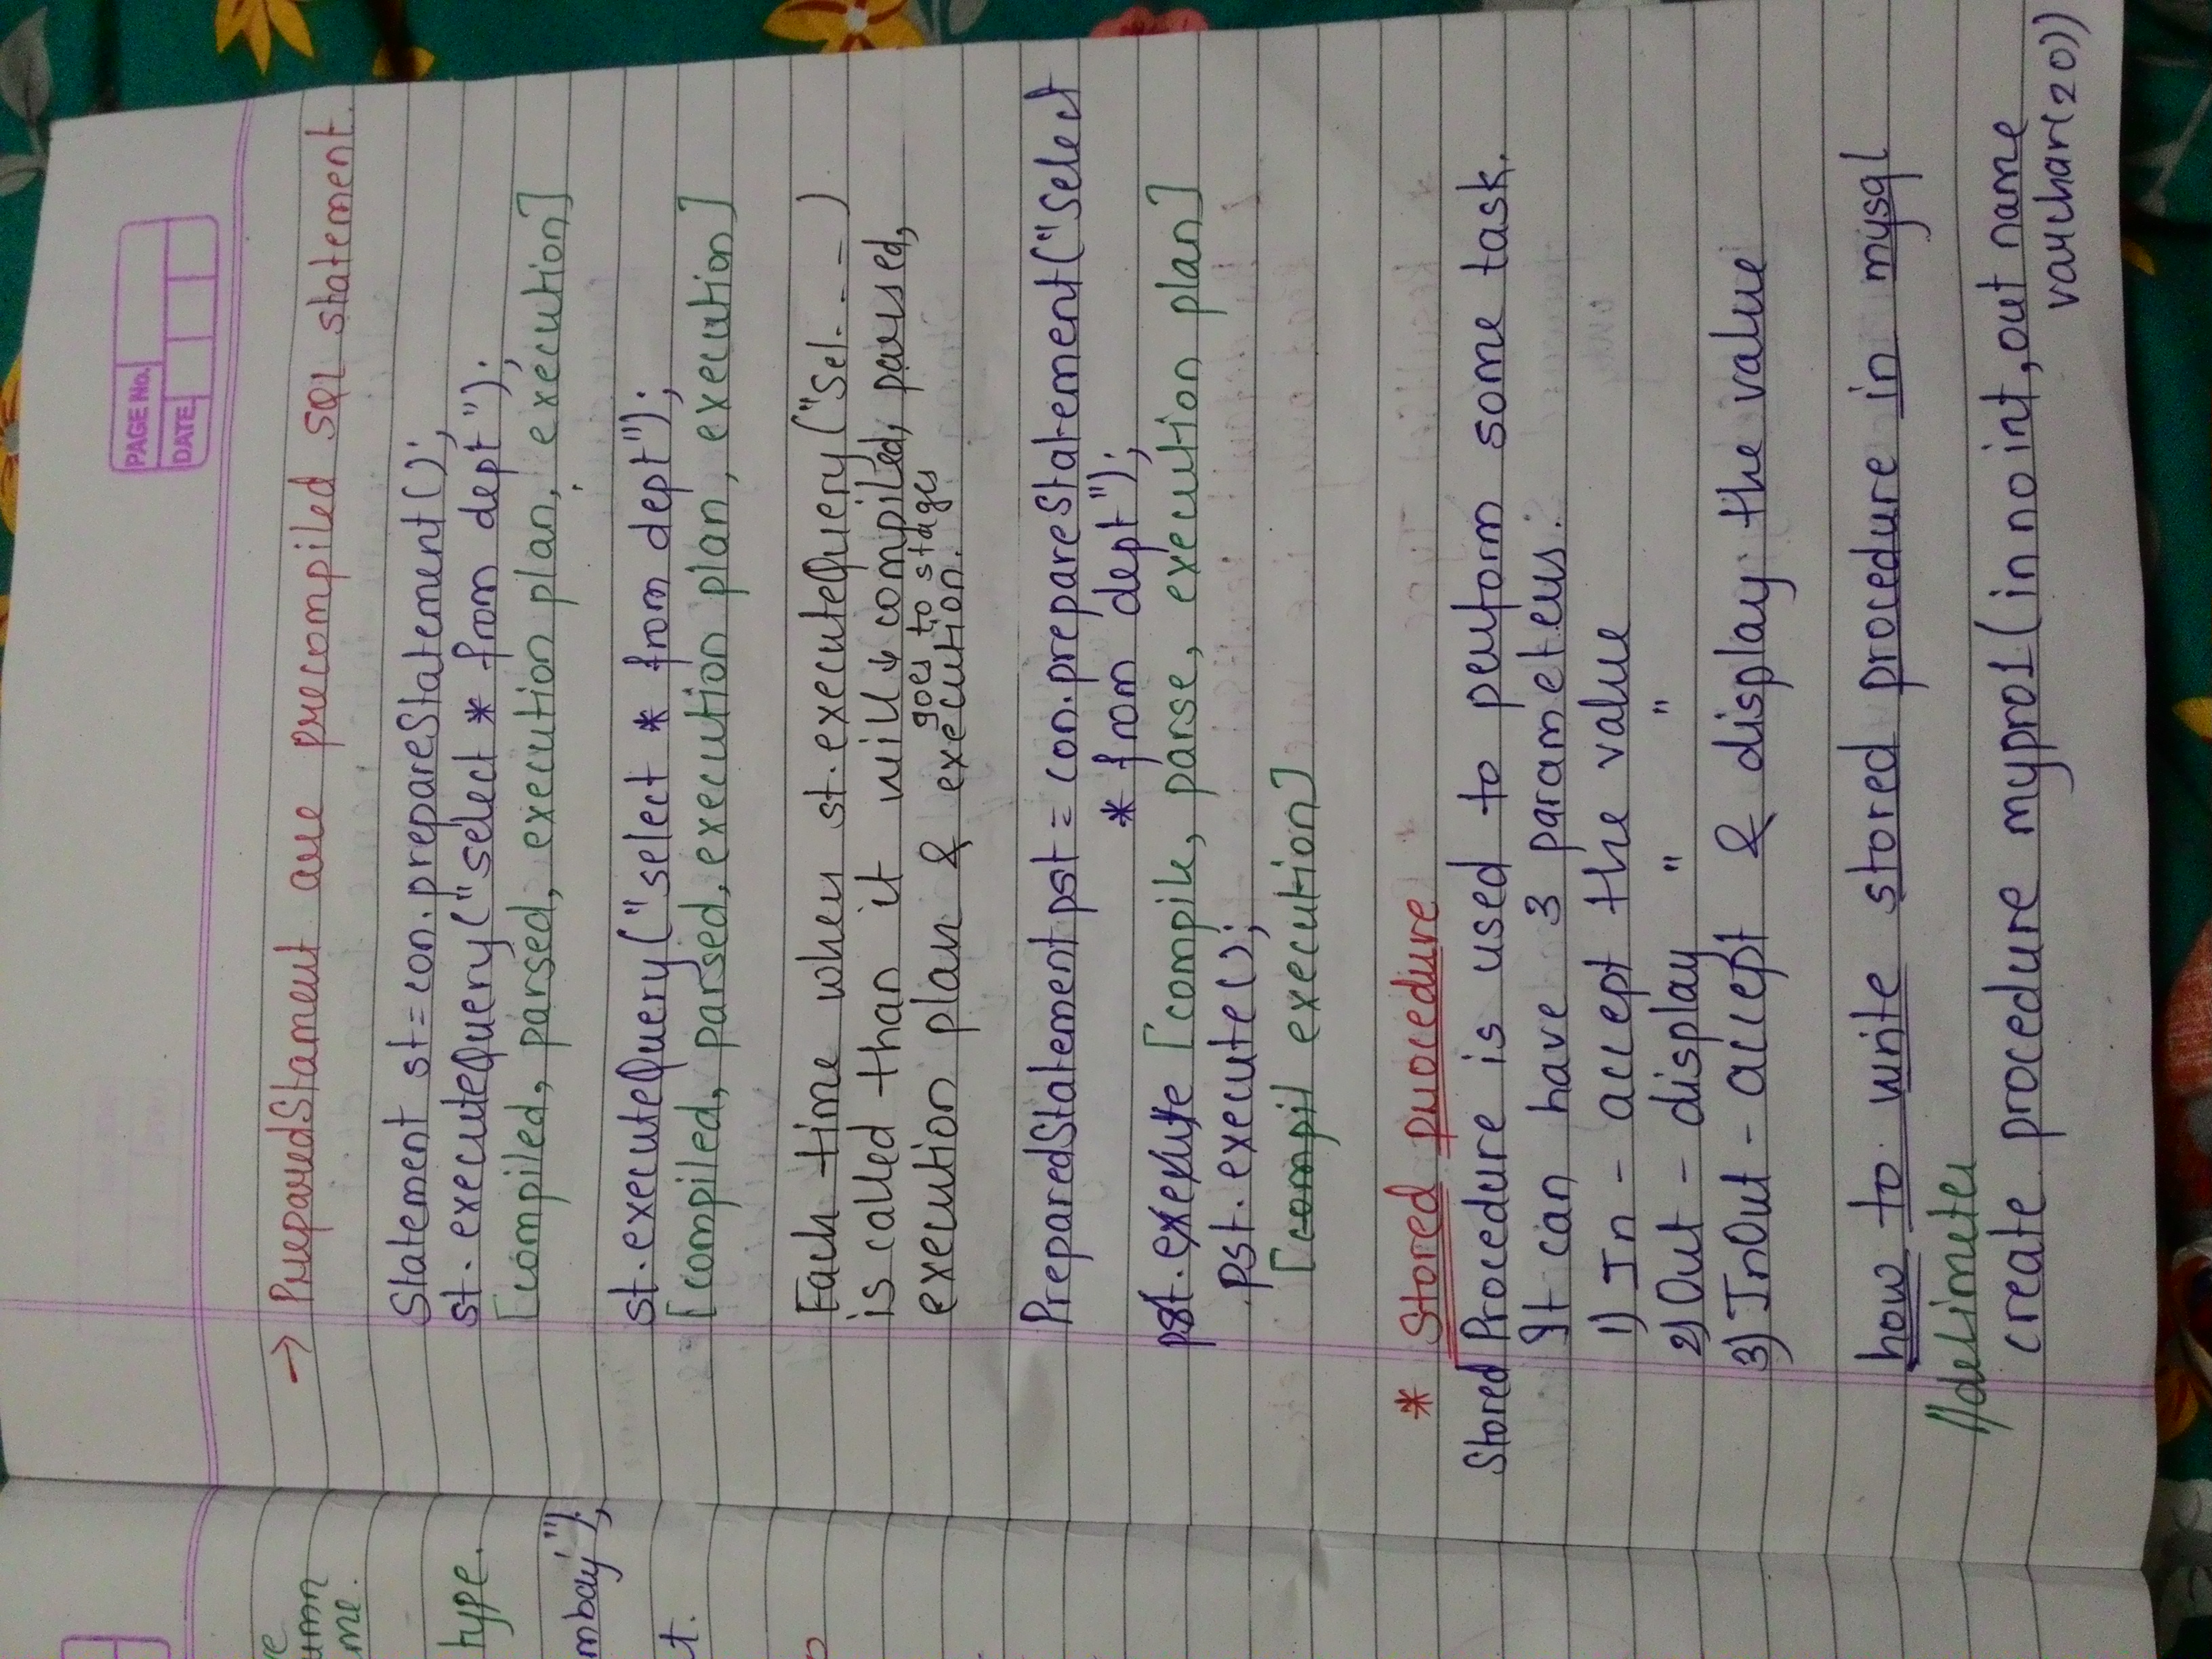 PAGE No.
DATE
→ PreparedStament are precompiled SQL statement.
Statement st = con.prepareStatement();
st.executeQuery("select * from dept");
[compiled, parsed, execution plan, execution]
st.executeQuery("select * from dept");
[compiled, parsed, execution plan, execution]
Each time when st.executeQuery("Sel. - - )
is called than it will ↓ compiled, parsed,
goes to stages
execution plan & execution.
PreparedStatement pst = con.prepareStatement("select
* from dept");
pst.execute [compile, parse, execution plan]
pst.execute();
[compil execution]
* Stored procedure
Stored Procedure is used to perform some task.
It can have 3 parameters.
1) In - accept the value
2) Out - display " "
3) InOut - accept & display the value
how to write stored procedure in mysql
//delimeter
create procedure mypro1(in no int, out name
varchar(20))
ve
umn
me.
type.
mbay'");
t.